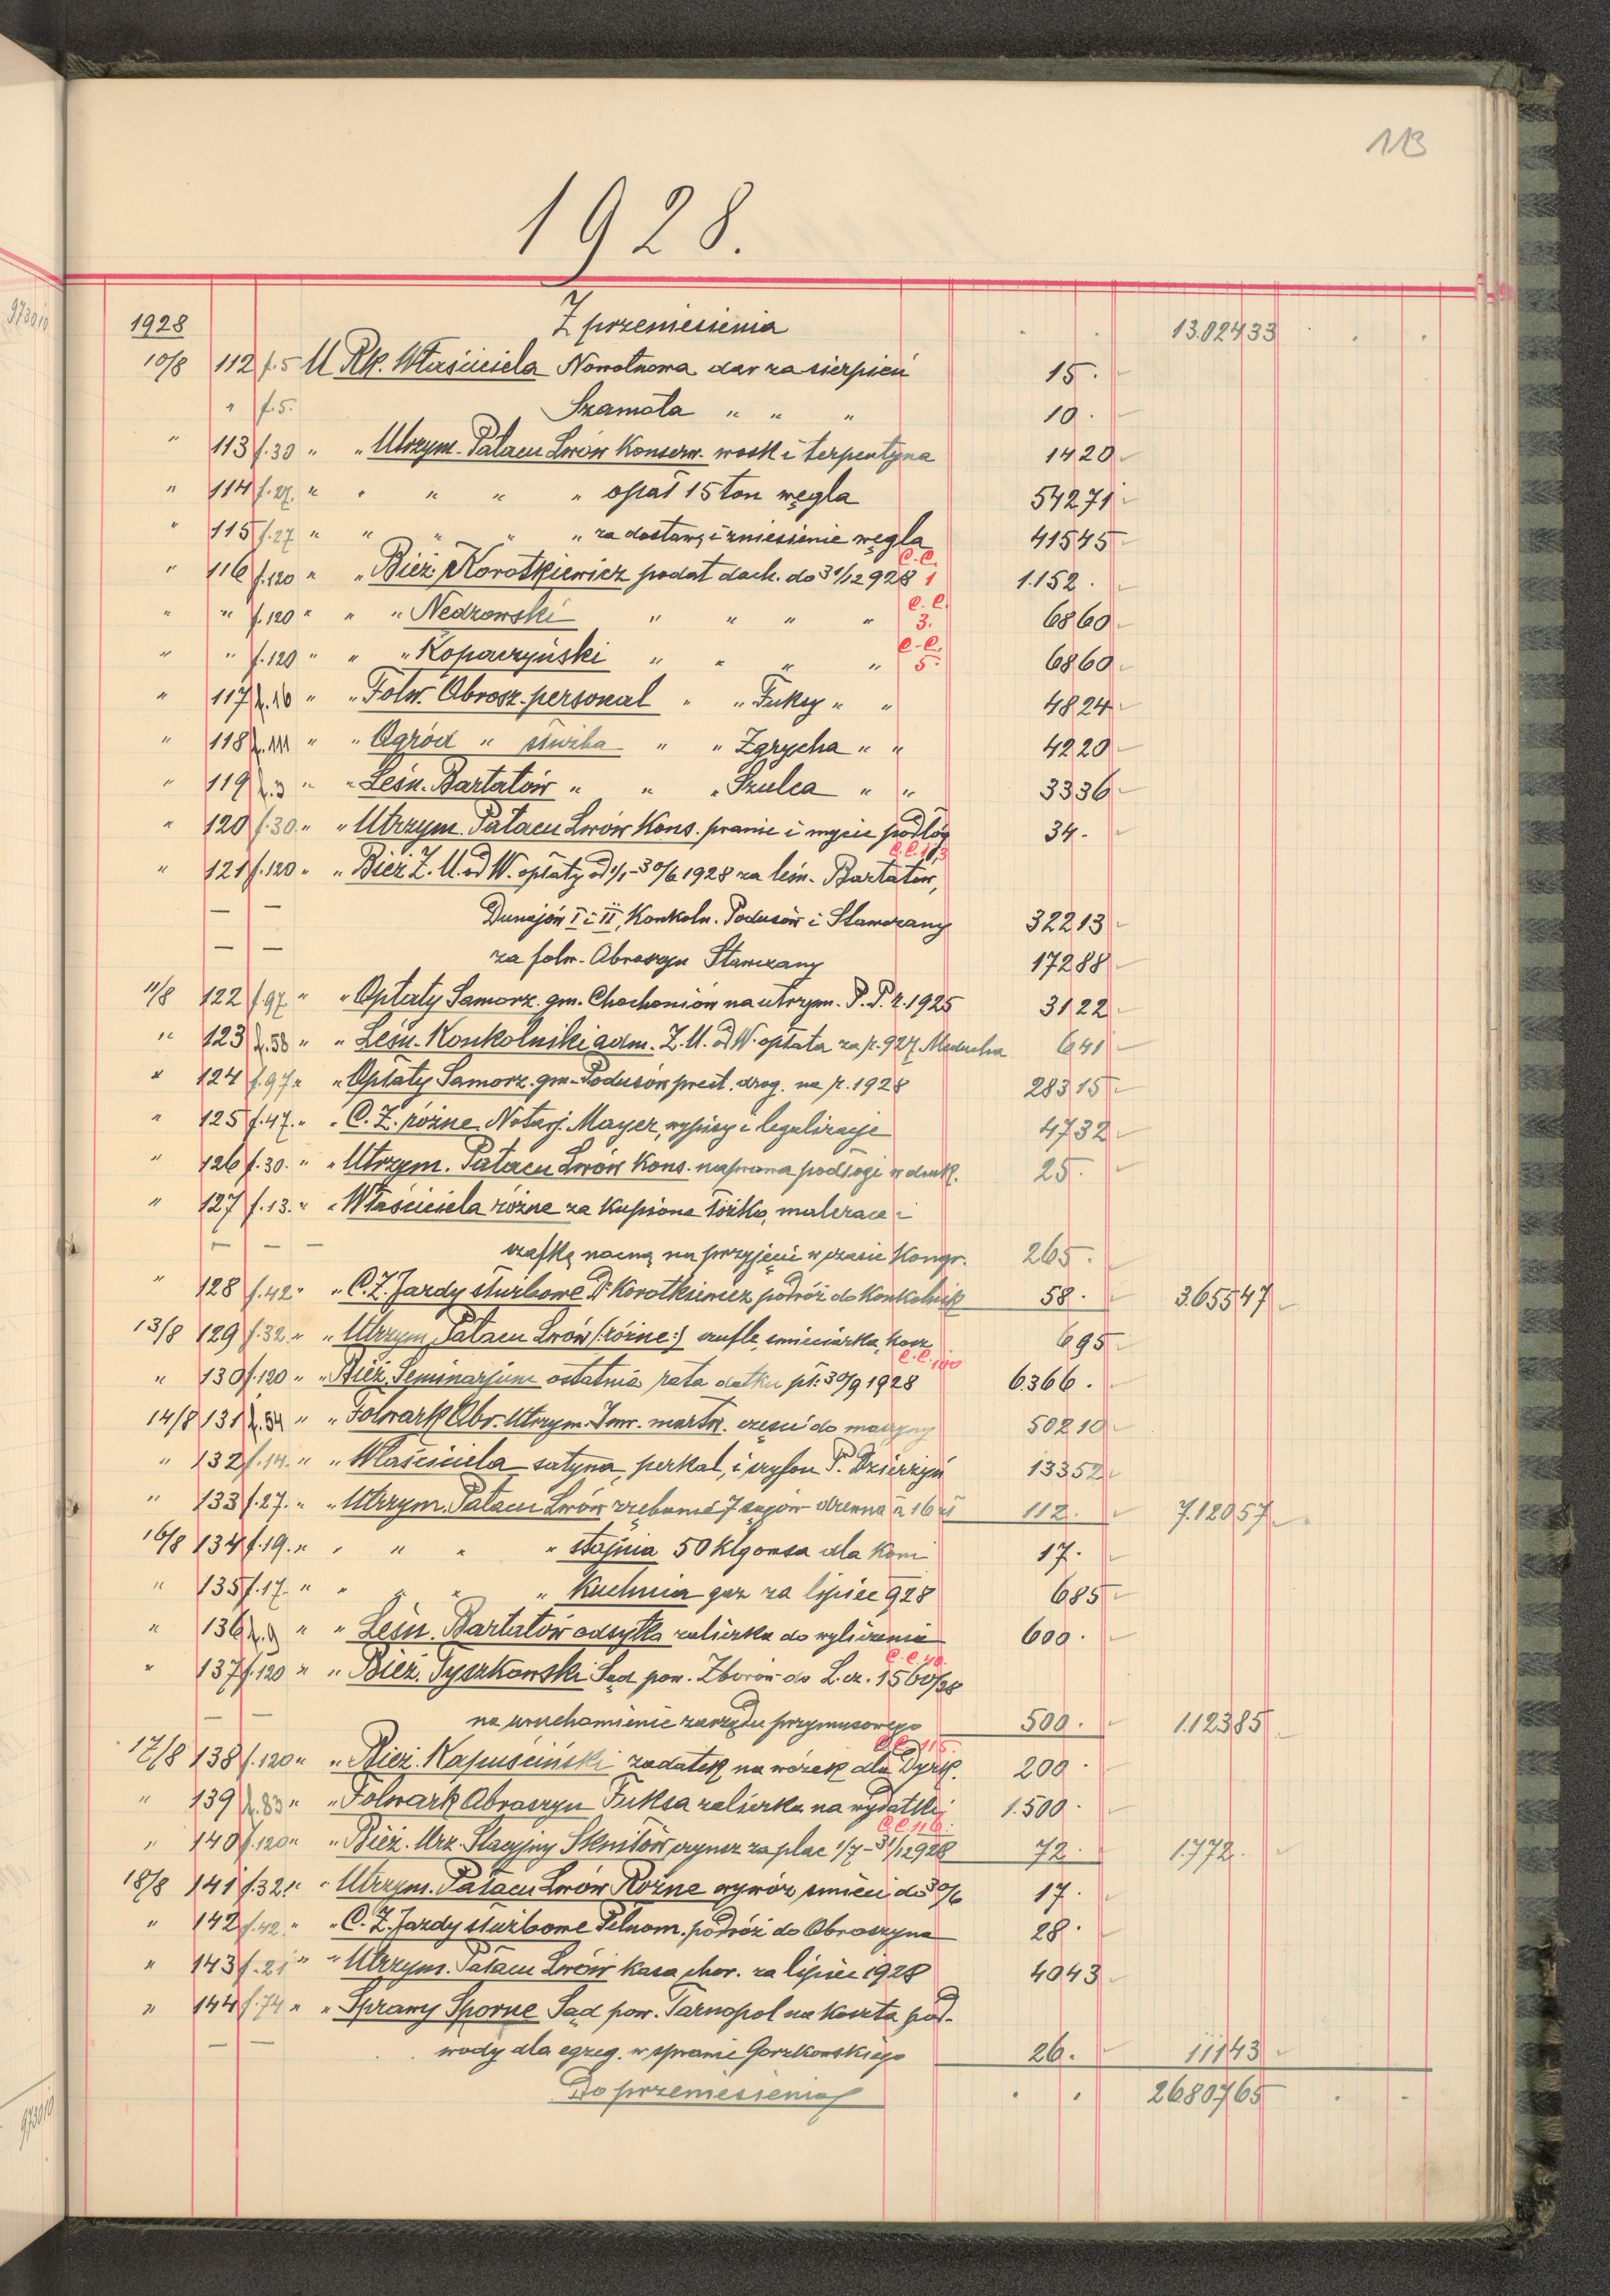 113
1928.
1928 Z przeniesienia 13.024 33
10/8 112 f.5 U Rk. Właściciela Nowotnowa dar za sierpień 15.
" f.5. Szamota " " " 10.
" 113 f.30 " " Utrzym. Pałacu Lwów Konserw. wosk i terpentyna 14 20
" 114 f.27. " " " " " opał 15 ton węgla 542 71
" 115 f.27 " " " " " za dostawę i zniesienie węgla 415 45
" 116 f.120 " " Bież. Korotkiewicz podat doch. do 31/12 928 C.C. 1 1.152.
" " f.120 " " " Nedzowski " " " " C.C. 3. 68 60
" " f.120 " " " Kopaczyński " " " " C.C. 5. 68 60
" 117 f.16 " " Folw. Obrosz. personal " " Fuksy " " 48 24
" 118 f.111 " " Ogród " służba " " Zgrycha " " 42 20
" 119 f.3 " " Leśn. Bartatów " " " Szulca " " 33 36
" 120 f.30. " " Utrzym. Pałacu Lwów Kons. pranie i mycie podłóg 34.
" 121 f.120 " " Bież Z. U. od W. opłaty od 1/1-30/6 1928 za leśn. Bartatów, C.C. 113
— — Dunajów I i II, Konkoln. Podusów i Stawczany 322 13
— — za folw. Obroszyn Stawczany 172 88
11/8 122 f.97. " " Opłaty Samorz. gm. Chochoniów na utrzym. P.P. r. 1925 31 22
" 123 f.58 " " Leśn. Konkolniki adm. Z. U. od W. opłata za r. 927 Meducha 6 41
" 124 f.97 " " Opłaty Samorz. gm. Podusów prest. drog. na r. 1928 283 15
" 125 f.47. " " C. Z. różne Notarj. Mayer, wypisy i legalizacje 47 32
" 126 f.30. " " Utrzym. Pałacu Lwów Kons. naprawa podłogi w druk. 25.
" 127 f.13. " " Właściciela różne za kupione łóżko, materace i
— — — szafkę nocną na przyjęcie w czasie Kongr. 265.
" 128 f.42 " " C. Z. Jazdy służbowe Dr Korotkiewicz podróż do Konkolnik 58. 3.655 47
13/8 129 f.32. " " Utrzym. Pałacu Lwów (:różne:) szufle, śmieciarka, kosz 6 95
" 130 f.120 " " Bież. Seminarjum ostatnia rata datku pł. 30/9 1928 C.C. 100 6.366.
14/8 131 f.54 " " Folwark Obr. Utrzym. Inw. martw. części do maszyny 502 10
" 132 f.14. " " Właściciela satyna, perkal, i szyfon P. Dzierżyń 133 52
" 133 f.27. " " Utrzym. Pałacu Lwów zrębanie 7 sągów drzewa à 16 zł 112. 7.120 57
16/8 134 f.19. " " " " " stajnia 50 klg owsa dla koni 17.
" 135 f.17. " " " " " Kuchnia gaz za lipiec 928 6 85
" 136 f.9 " " Leśn. Bartatów odsyłka zaliczka do wyliczenia 600.
" 137 f.120 " " Bież. Tyszkowski Sąd pow. Zborów do L. cz. 1560/28
— — na uruchomienie zarządu przymusowego 500. 1.123 85
17/8 138 f.120 " " Bież. Kapuściński zadatek na wózek dla Dyrk. C.C. 115. 200.
" 139 f.83 " " Folwark Obroszyn Fuksa zaliczka na wydatki 1.500.
" 140 f.120 " " Bież. Urz. Stacyjny Sknitów, czynsz za plac 1/7-31/12 928 C.C. 116. 72. 1.772.
18/8 141 f.32. " " Utrzym. Pałacu Lwów Różne wywóz śmieci do 30/6 17.
" 142 f.42. " " C. Z. Jazdy służbowe Pełnom. podróż do Obroszyna 28.
" 143 f.21 " " Utrzym. Pałacu Lwów kasa chor. za lipiec 1928 40 43
" 144 f.74 " " Sprawy Sporne Sąd pow. Tarnopol na koszta pod-
— — wody dla egzeg. w sprawie Gorzkowskiego 26. 111 43
Do przeniesienia 26.807 65